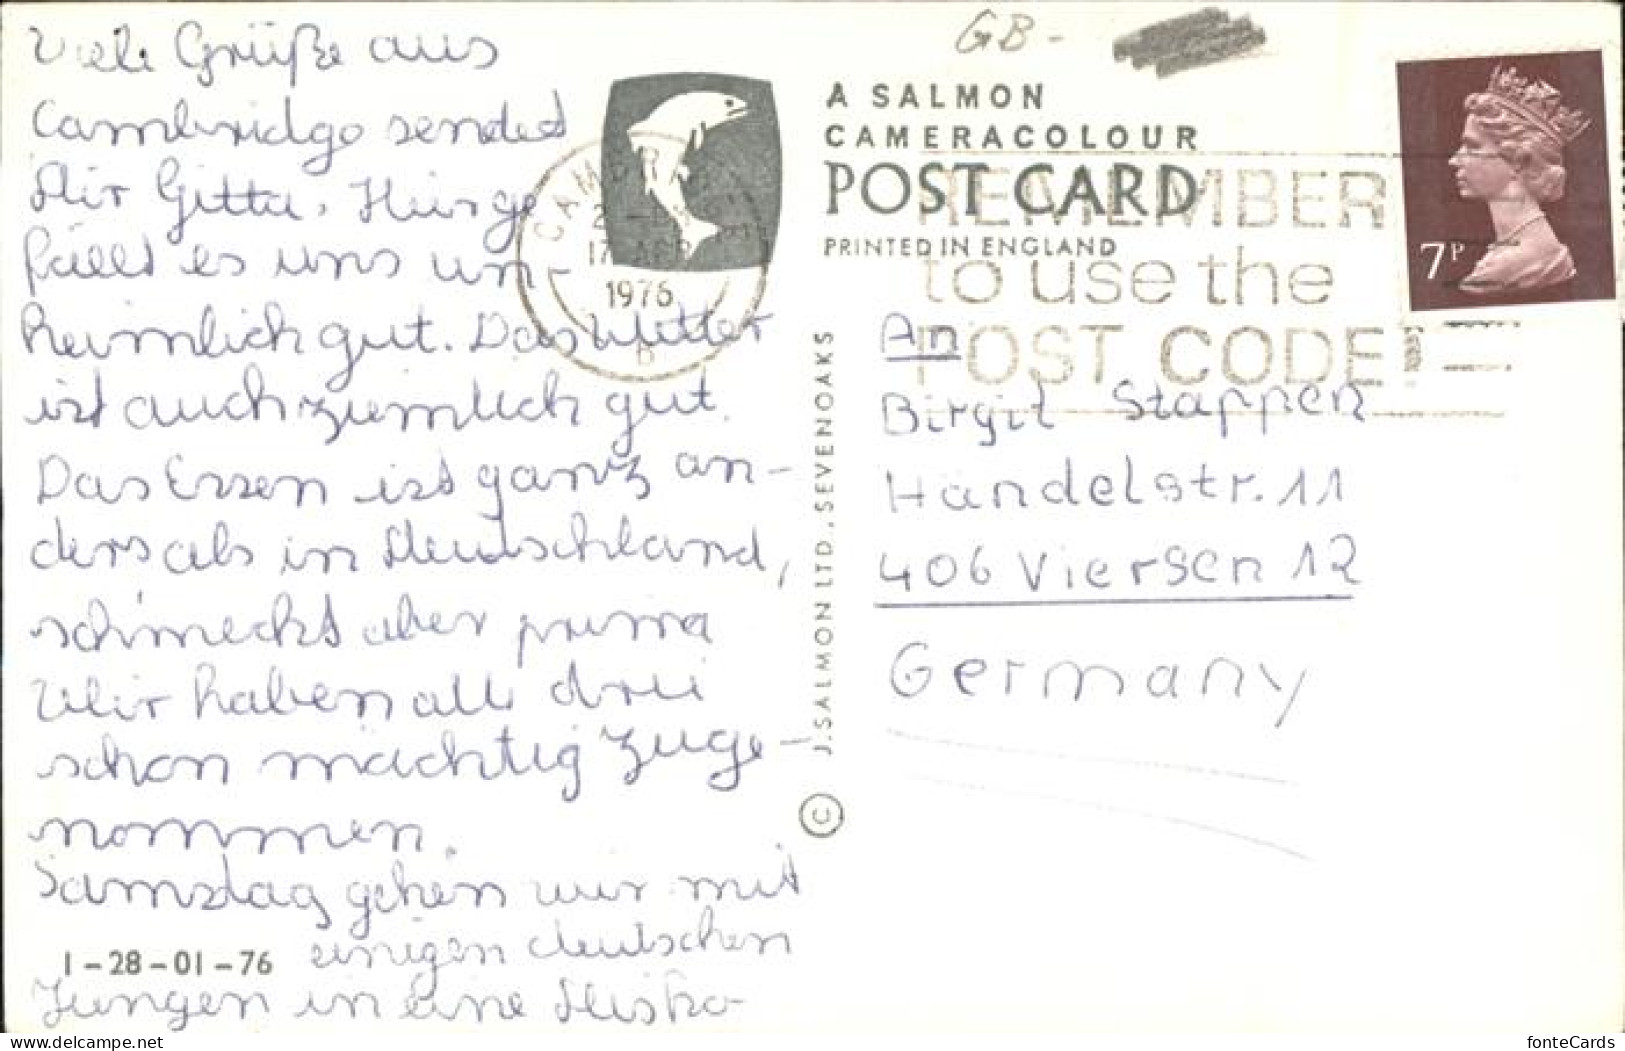 Viele Grüße aus
Cambridge sendet
Dir Gitta. Hier ge-
fällt es uns un-
heimlich gut. Das Wetter
ist auch ziemlich gut.
Das Essen ist ganz an-
ders als in Deutschland,
schmeckt aber prima
Wir haben alle drei
schon mächtig zuge-
nommen.
Samstag gehen wir mit
einigen deutschen
Jungen in eine Disko
1-28-01-76
GB-
A SALMON
CAMERACOLOUR
POST CARD
PRINTED IN ENGLAND
J. SALMON LTD., SEVENOAKS ©
17 APR
1976
REMEMBER
to use the
POST CODE
7P
An
Birgit Stappen
Händelstr. 11
406 Viersen 12
Germany
fonteCards
www.delcampe.net